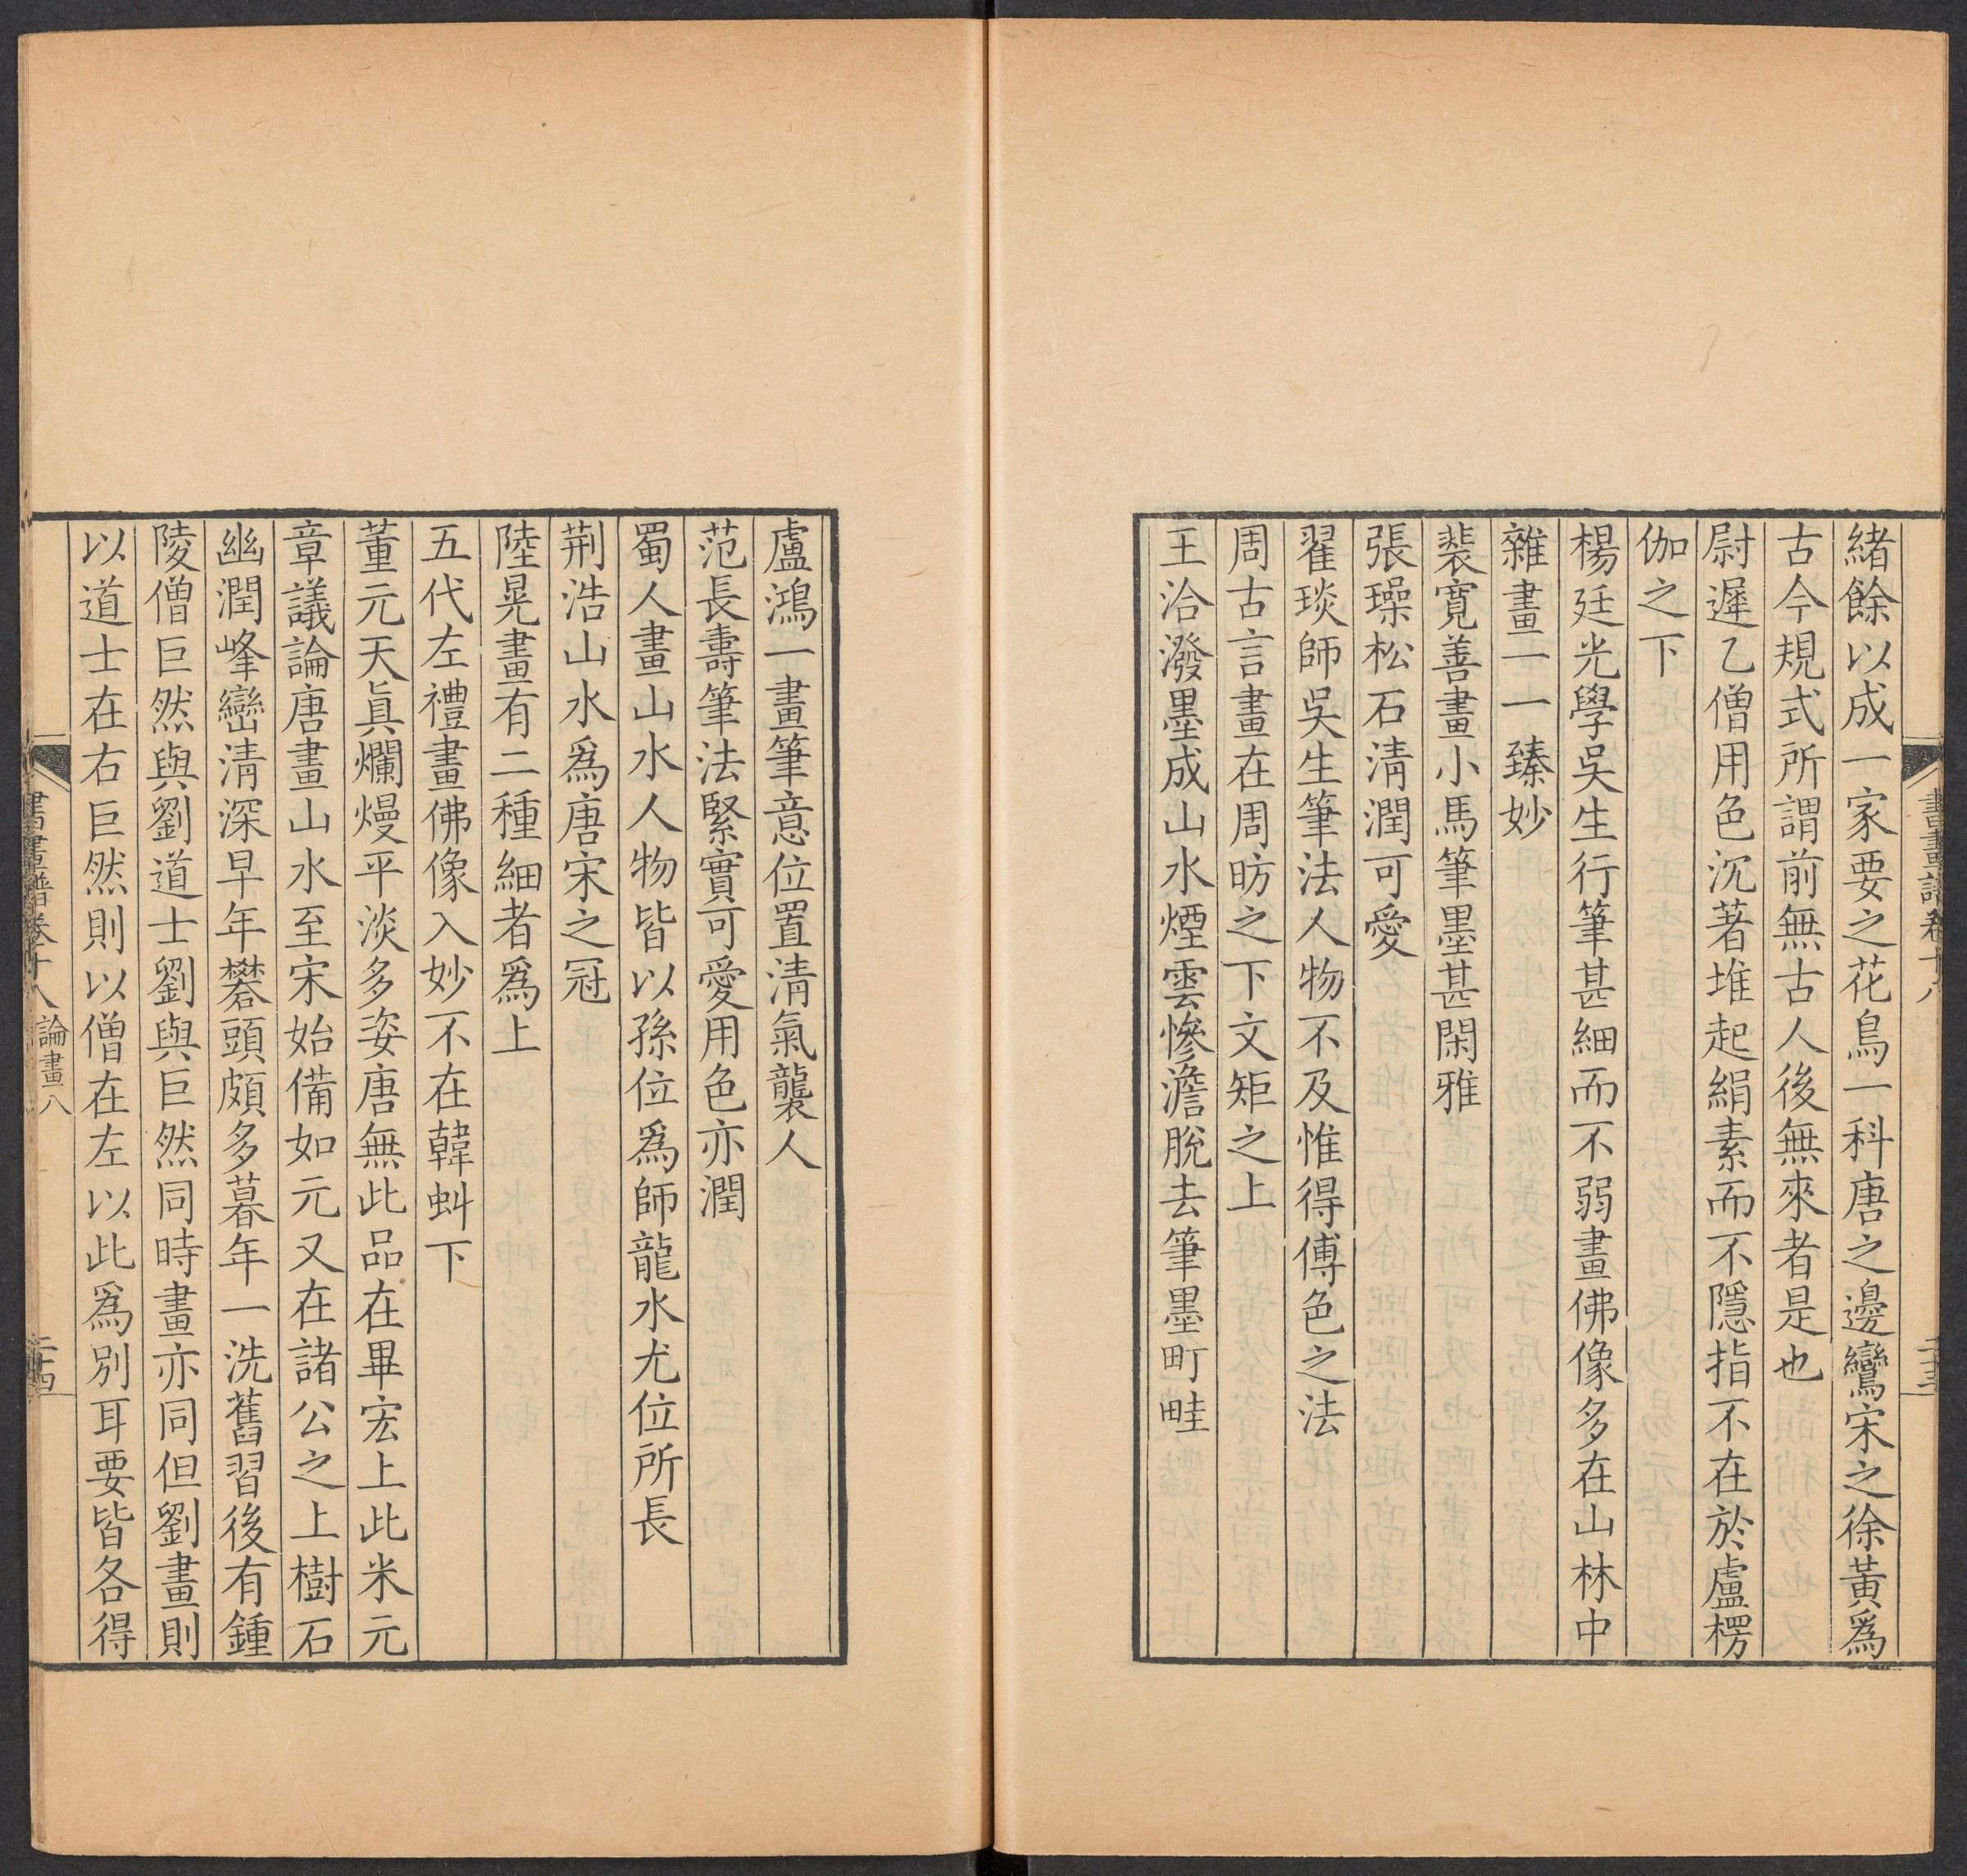 緒餘以成一家要之花鳥一科唐之邊鸞宋之徐黃爲
古今規式所謂前無古人後無來者是也
尉遲乙僧用色沉著堆起絹素而不隱指不在於盧楞
伽之下
楊廷光學吳生行筆甚細而不弱畫佛像多在山林中
雜畫一一臻妙
裴寬善畫小馬筆墨甚閑雅
張璪松石清潤可愛
翟琰師吳生筆法人物不及惟得傅色之法
周古言畫在周昉之下文矩之上
王洽潑墨成山水煙雲慘澹脫去筆墨町畦
盧鴻一畫筆意位置清氣襲人
范長壽筆法緊實可愛用色亦潤
蜀人畫山水人物皆以孫位爲師龍水尤位所長
荊浩山水爲唐宋之冠
陸晃畫有二種細者爲上
五代左禮畫佛像入妙不在韓虯下
董元天眞爛熳平淡多姿唐無此品在畢宏上此米元
章議論唐畫山水至宋始備如元又在諸公之上樹石
幽潤峰巒清深早年礬頭頗多暮年一洗舊習後有鍾
陵僧巨然與劉道士劉與巨然同時畫亦同但劉畫則
以道士在右巨然則以僧在左以此爲別耳要皆各得
書畫譜卷十八 論畫八